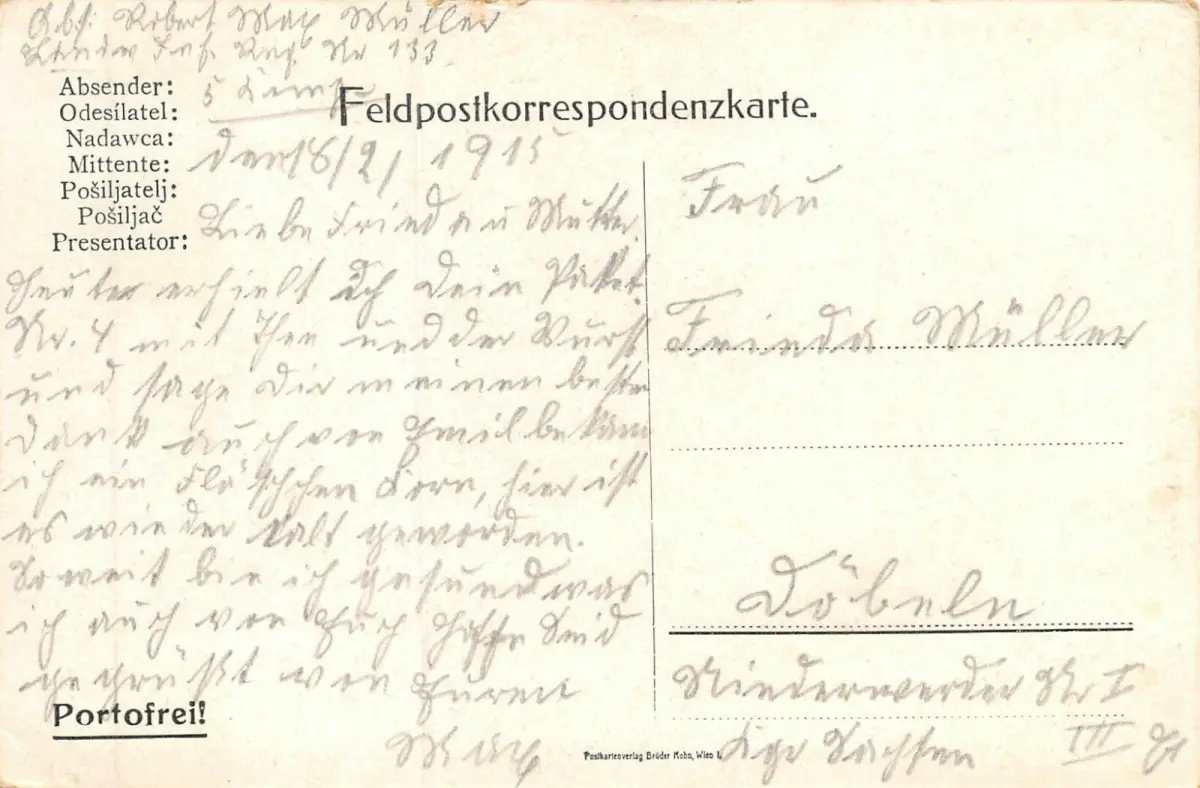 Abs. Robert Max Müller
Landw Inf. Reg. Nr 133
5 Komp.
Absender:
Odesílatel:
Nadawca:
Mittente:
Pošiljatelj:
Pošiljač
Presentator:
Feldpostkorrespondenzkarte.
den 18/2/ 1915
Liebe Frieda u Mutter.
Heute erhielt ich Dein Paket
Nr. 4 mit Thee und der Wurst
und sage Dir meinen besten
Dank auch von Emil bekam
ich ein Fläschchen Korn, hier ist
es wieder kalt geworden.
Soweit bin ich gesund was
ich auch von Euch hoffe Seid
gegrüßt von Euren
Max
Portofrei!
Frau
Frieda Müller
Döbeln
Niederwerder Nr I
Kgr Sachsen III
Postkartenverlag Brüder Kohn, Wien I.